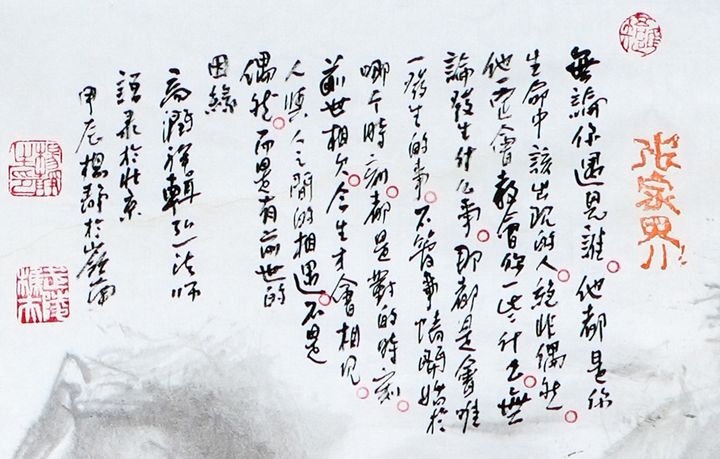 张家界
無論你遇見誰。他都是你
生命中該出現的人。絕非偶然。
他一定會教會你一些什么。無
論發生什么事。那都是會唯
一發生的事。不管事情開始於
哪个時刻。都是對的時刻。
前世相欠。今生才會相見。
人與人之間的相遇。不是
偶然。而是有前世的
因緣
高潤祥輯弘一法師
語录於北京
甲辰楊靜於嶺南